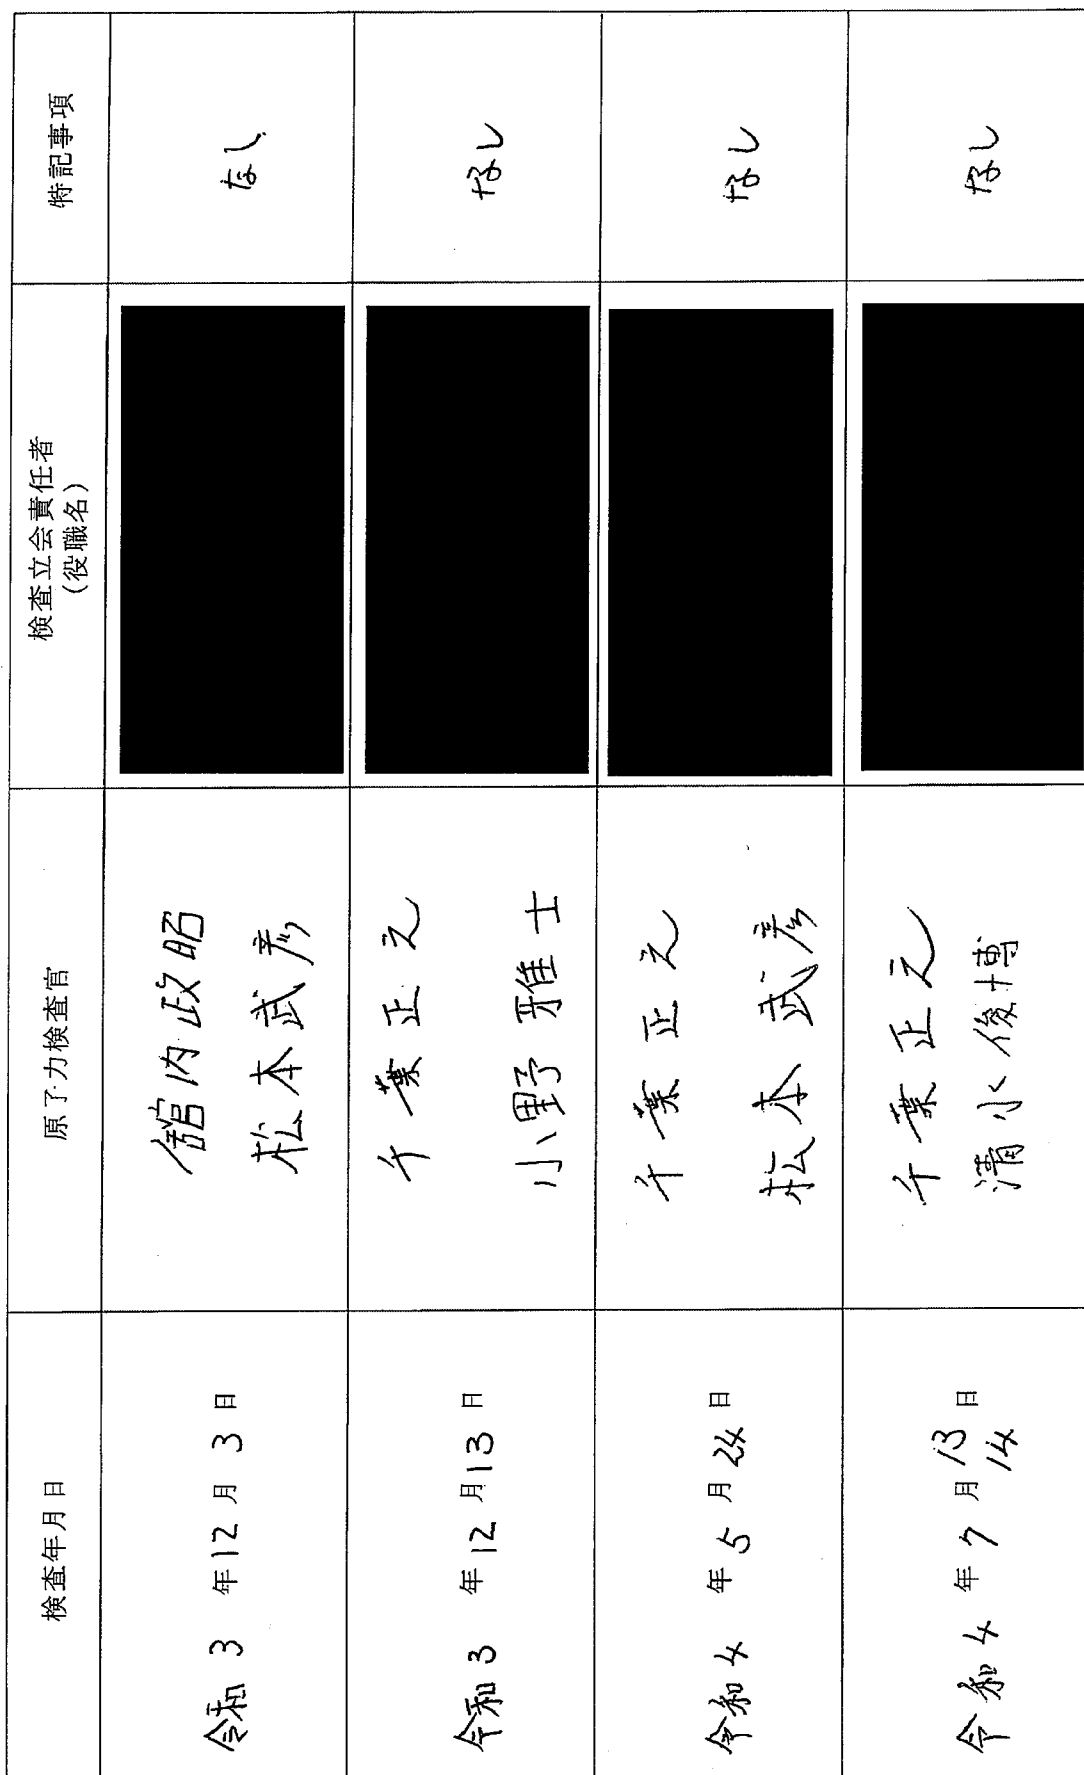 検査年月日
原子力検査官
検査立会責任者
(役職名)
特記事項
令和 3 年 12 月 3 日
舘内政昭
松本武彦
なし
令和 3 年 12 月 13 日
千葉正之
小野雅士
なし
令和 4 年 5 月 24 日
千葉正之
松本武彦
なし
令和 4 年 7 月 13 日
14
千葉正之
清水俊博
なし